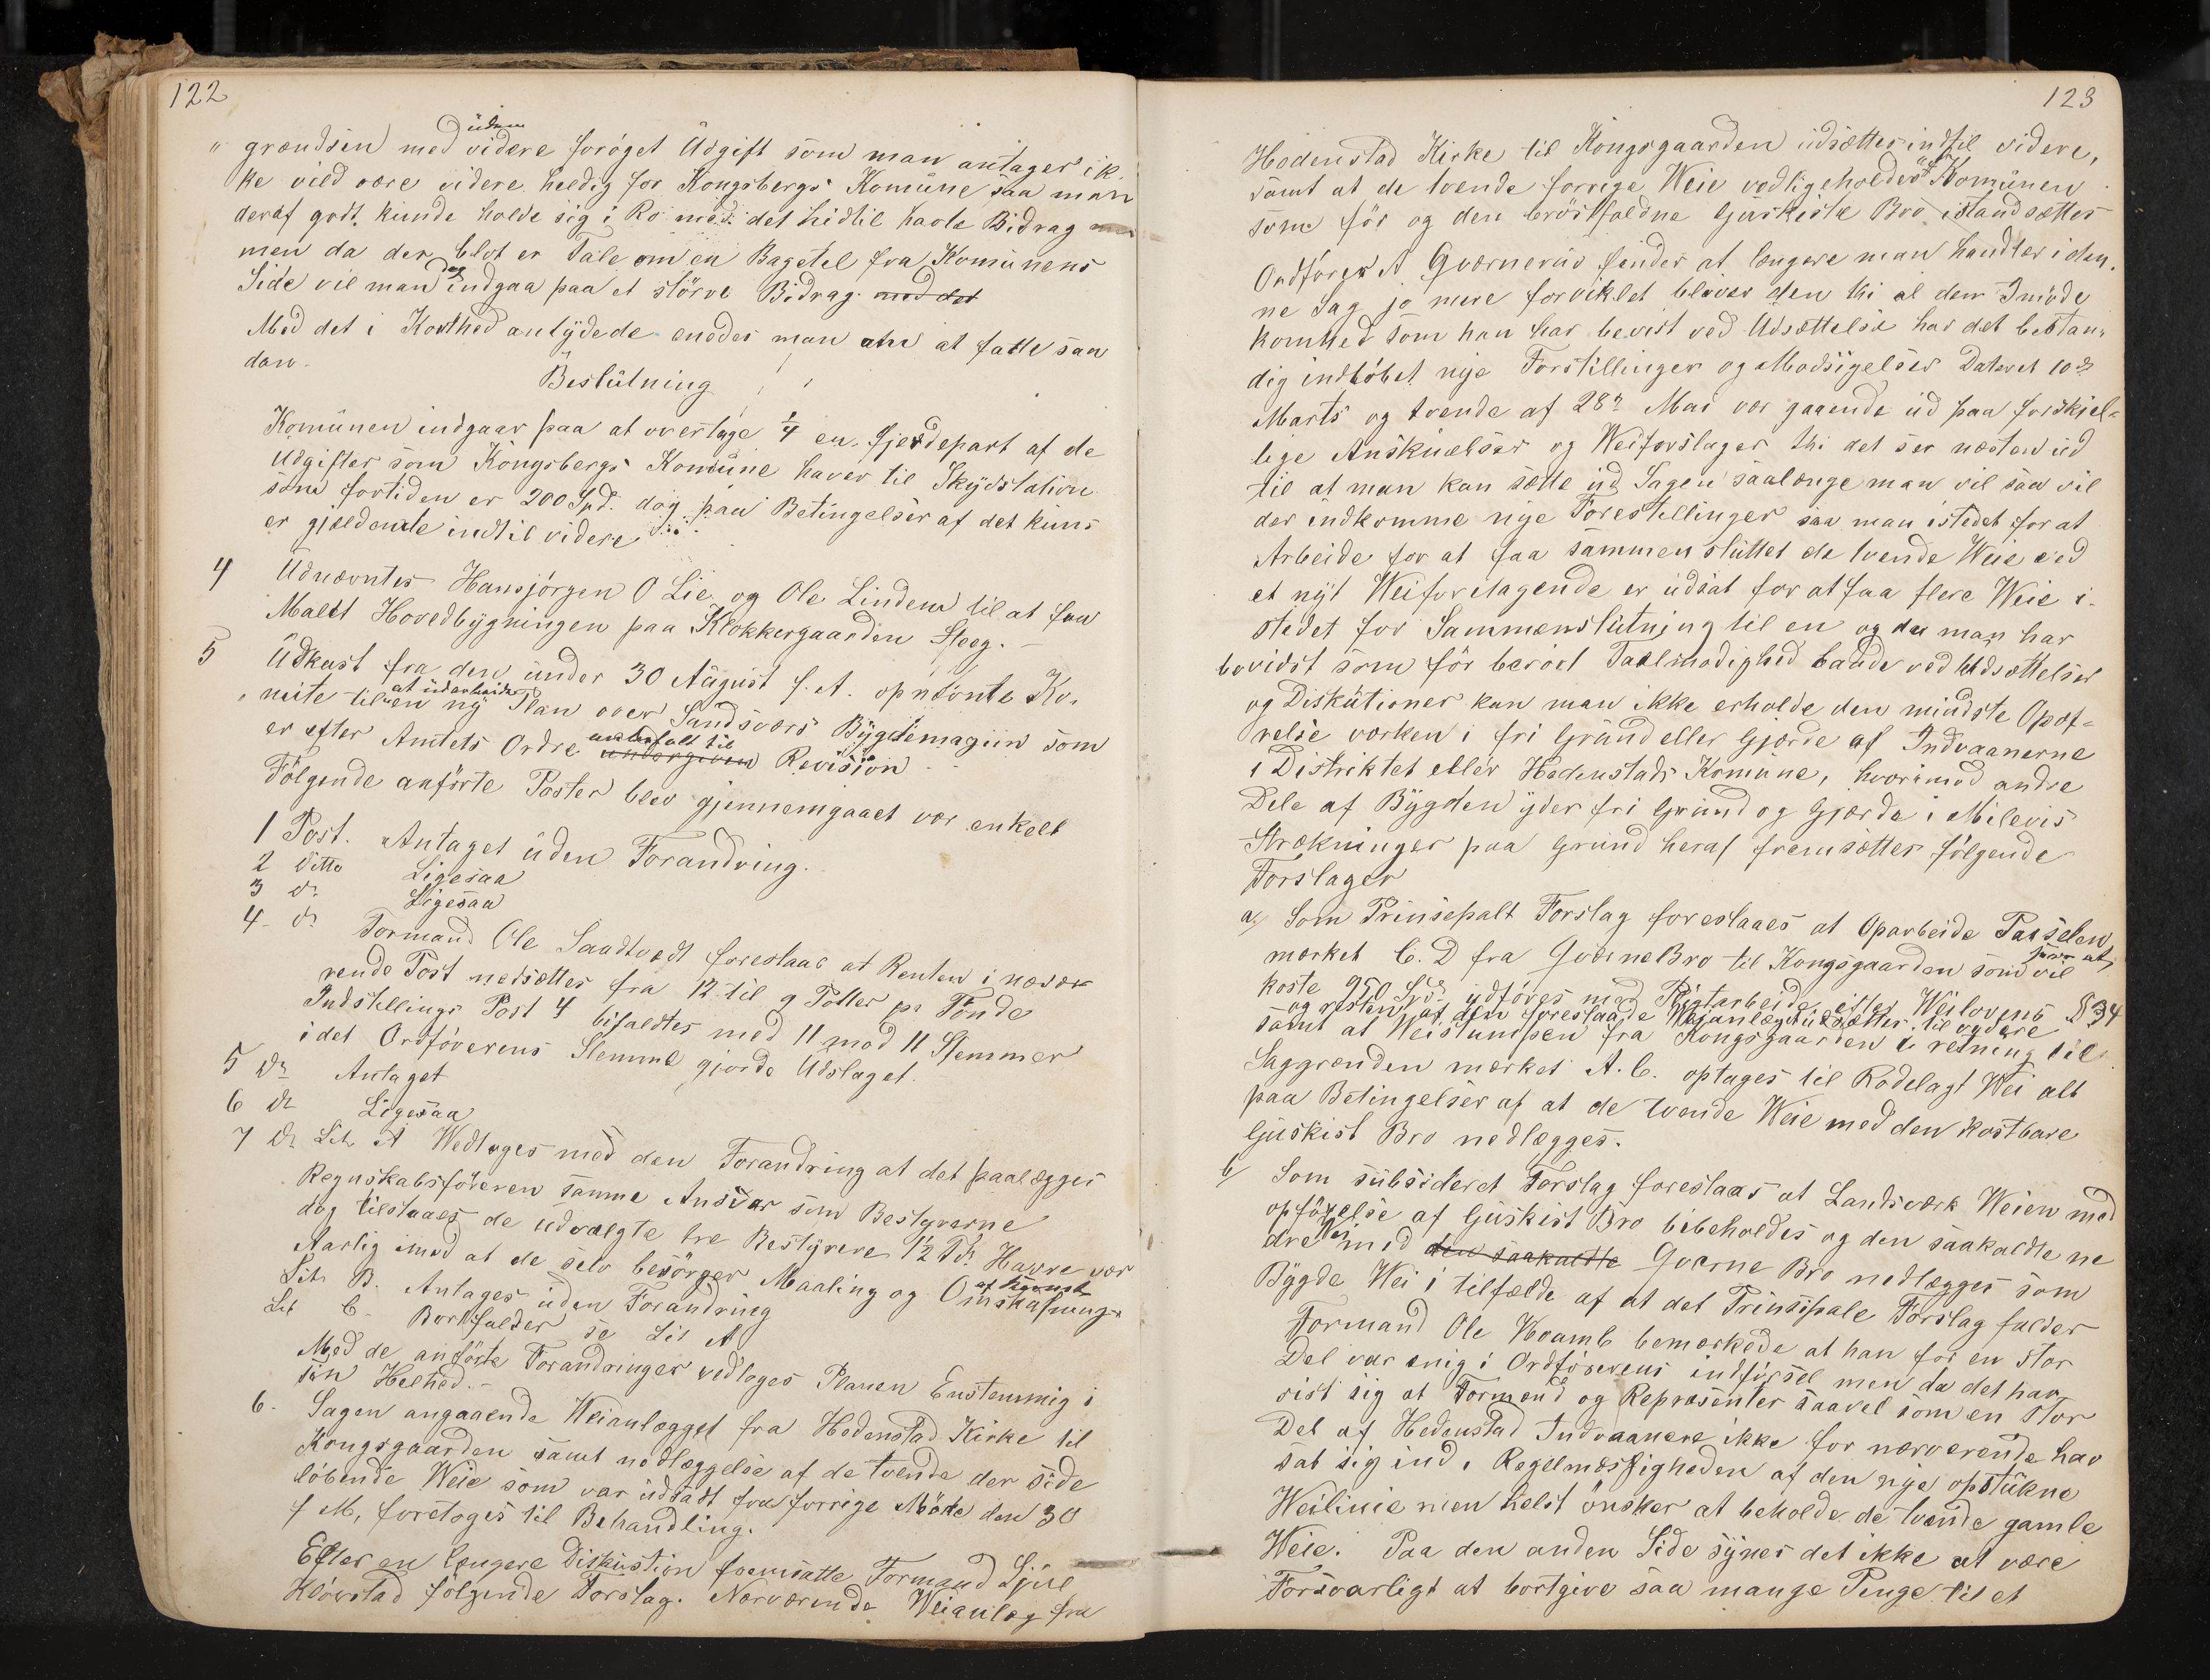 122
uden
" grændsen med videre forøget Udgift som man antager ik
ke vild være videre heldig for Kongsbergs Komüne saa man
deraf godt kunde holde sig i Ro med det hidtil havte Bidrag
men da der blot er Tale om en Bagetel fra Komünens
Side vil man dog indgaa paa et større Bidrag med det
Med det i Korthed antydede enedes man om at fatte saa
dan
Beslütning
Komünen indgaar paa at overtage 1/4 en Fjerdepart af de
Udgifter som Kongsbergs Komüne haver til Skydstation
som fortiden er 200 Spd. dog paa Betingelser af det kuns
er gjældende indtil videre
4 Udnævntes Hansjörgen O Lie og Ole Linden til at faa
Malet Hovedbygningen paa Klokkergaarden Steeg. —
5 Udkast fra den under 30 August f. A. opnævnte Ko-
at üdarbeide
mite til en ny Plan over Sandsværs Bygdemagiin som
anbefalt til
er efter Amtets Ordre undergiven Revision
Følgende anførte Poster blev gjennemgaaet vær enkelt
1 Post. Antaget üden Forandring.
2 Ditto Ligesaa
3 do Ligesaa
4 do Formand Ole Saadtvedt foreslaar at Renten i nærvæ
rende Post nedsættes fra 12 til 9 Potter pr Tönde
Indstillings Post 4 bifaldtes med 11 mod 11 Stemmer
idet Ordförerens Stemme gjorde Udslaget.
5 do Antaget
6 do Ligesaa
7 do Lit. A Wedtages med den Forandring at det paalægges
Regnskabsföreren samme Ansvar som Bestyrerne
dog tilstaaes de üdvalgte tre Bestyrere 1½ Td. Havre vær
Aarlig imod at de selv besörger Maaling og Omskapning
Lit B. Antages üden Forandring
Lit C. Bortfalder se Lit A
Med de anförte Forandringer vedtoges Planen Enstemmig i
sin Helhed. —
6. Sagen angaaende Weianlægget fra Hedenstad Kirke til
Kongsgaarden samt nedlæggelse af de tvende der side
löbende Weie som var üdsadt fra forrige Möde den 30
f M, foretoges til Behandling.
Efter en længere Disküstion fremsatte Formand Sjul
Klövstad fölgende Forslag. Nærværende Weianlæg fra
123
Hedenstad Kirke til Kongsgaarden üdsættes indtil videre,
samt at de tvende forrige Weie vedligeholdes af Komünen
som för og den bröstfældne Gjüskista Bro istandsættes
Ordförer A Gværnerüd finder at længere man handler i den
ne Sag jo mere forviklet bliver den thi al den Imöde
komhed som han har bevist ved Udsættelse har det bestan-
dig indlöbet nye Forstillinger og Modsigelser Dateret 10de
Marts og tvende af 28de Mai vor gaaende üd paa forskjel-
lige Anskuelser og Weiforslager thi det ser næsten üd
til at man kan sætte üd Sagen saalænge man vil saa vil
der indkomme nye Forestillinger saa man istedet for at
Arbeide for at faa sammenslüttet de tvende Weie ved
et nyt Weiforetagende er üdsat for at faa flere Weie i-
stedet for Sammenslütning til en og da man har
bevidst som för berört Taalmodighed baade ved Udsættelser
og Diskütioner kan man ikke erholde den mindste Opof-
relse værken i fri Gründ eller Gjærde af Indvaanerne
i Distriktet eller Hedenstads Komüne, hvorimod andre
Dele af Bygden yder fri Gründ og Gjærde i Milevis
Strækninger paa Gründ heraf fremsætter fölgende
Forslager
a/ Som Prinsepalt Forslag foreslaaes at Oparbeide Parselen
mærket C. D fra Gværne Bro til Kongsgaarden som vil
koste 950 Spd. üdföres med Pligtarbeide efter Weilovens § 34
og resten af den foreslaade Weianlæget üdsættes til videre
samt at Weistumpen fra Kongsgaarden i retning til
Saggrenden mærket A. C. optages til Rodelagt Wei alt
paa Betingelser af at de tvende Weie med den kostbare
Gjüskist Bro nedlægges.
b/ Som sübsideret Forslag foreslaas at Landsværk Weien med
opförelse af Gjüskist Bro bibeholdes og den saakaldte ne
dre Wei med den saakaldte Gværne Bro nedlægges som
Bygde Wei i tilfælde af at det Prinsipale Forslag falder
Formand Ole Kvamb bemærkede at han for en stor
Del var enig i Ordförerens indförsel men da det har
vist sig at Formend og Repræsenter saavel som en stor
Del af Hedenstad Indvaanere ikke for nærværende har
sat sig ind i Regelmæssigheden af den nye opstükne
Weilinie men helst önsker at beholde de tvende gamle
Weie. Paa den anden Side synes det ikke at være
Forsvarligt at bortgive saa mange Penge til et